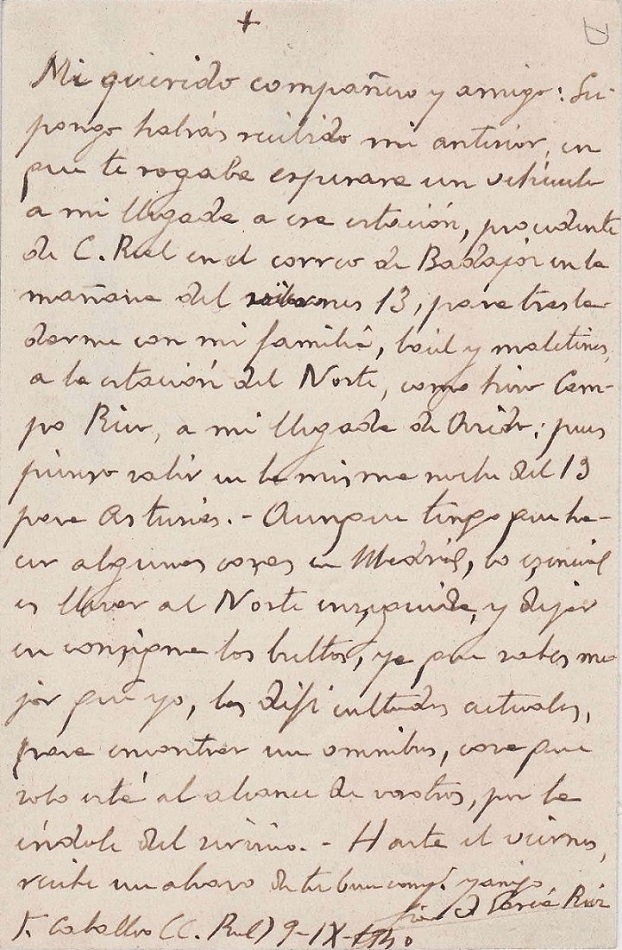 +
Mi querido compañero y amigo: Su-
pongo habrás recibido mi anterior, en
que te rogaba esperara un vehículo
a mi llegada a esa estación, procedente
de C. Real en el correo de Badajóz en la
mañana del viernes 13, para trasla-
darme con mi familia, baúl y maletines,
a la estación del Norte, como hizo Cam-
po Rico, a mi llegada de Oviedo; pues
pienso salir en la misma noche del 13
para Asturias.- Aunque tengo que ha-
cer algunas cosas en Madrid, lo esencial
es llevar al Norte enseguida, y dejar
en consigna los bultos, ya que sabes me-
jor que yo, las dificultades actuales,
para encontrar un omnibus, cosa que
solo está al alcance de vosotros, por la
índole del servicio.- Hasta el viernes,
recibe un abrazo de tu buen comp.º y amigo
García Ruiz
F. Caballero (C. Real) 9-IX-